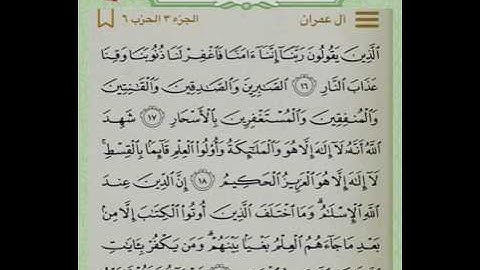 آل عمران الجزء ٣ الحزب ٦
ٱلَّذِينَ يَقُولُونَ رَبَّنَآ إِنَّنَآ ءَامَنَّا فَٱغْفِرْ لَنَا ذُنُوبَنَا وَقِنَا
عَذَابَ ٱلنَّارِ ١٦ ٱلصَّٰبِرِينَ وَٱلصَّٰدِقِينَ وَٱلْقَٰنِتِينَ
وَٱلْمُنفِقِينَ وَٱلْمُسْتَغْفِرِينَ بِٱلْأَسْحَارِ ١٧ شَهِدَ
ٱللَّهُ أَنَّهُۥ لَآ إِلَٰهَ إِلَّا هُوَ وَٱلْمَلَٰٓئِكَةُ وَأُو۟لُوا۟ ٱلْعِلْمِ قَآئِمًۢا بِٱلْقِسْطِ ۚ
لَآ إِلَٰهَ إِلَّا هُوَ ٱلْعَزِيزُ ٱلْحَكِيمُ ١٨ إِنَّ ٱلدِّينَ عِندَ
ٱللَّهِ ٱلْإِسْلَٰمُ ۗ وَمَا ٱخْتَلَفَ ٱلَّذِينَ أُوتُوا۟ ٱلْكِتَٰبَ إِلَّا مِنۢ
بَعْدِ مَا جَآءَهُمُ ٱلْعِلْمُ بَغْيًۢا بَيْنَهُمْ ۗ وَمَن يَكْفُرْ بِـَٔايَٰتِ